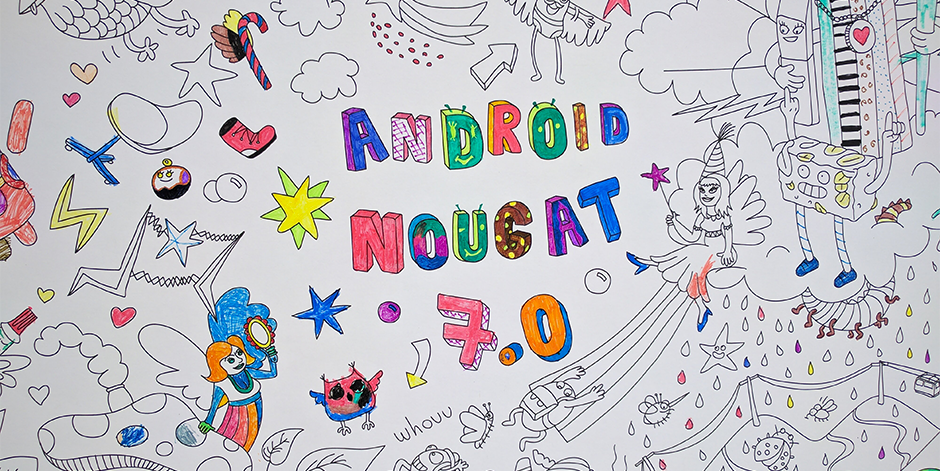 ANDROID
NOUGAT
7.0
whouu